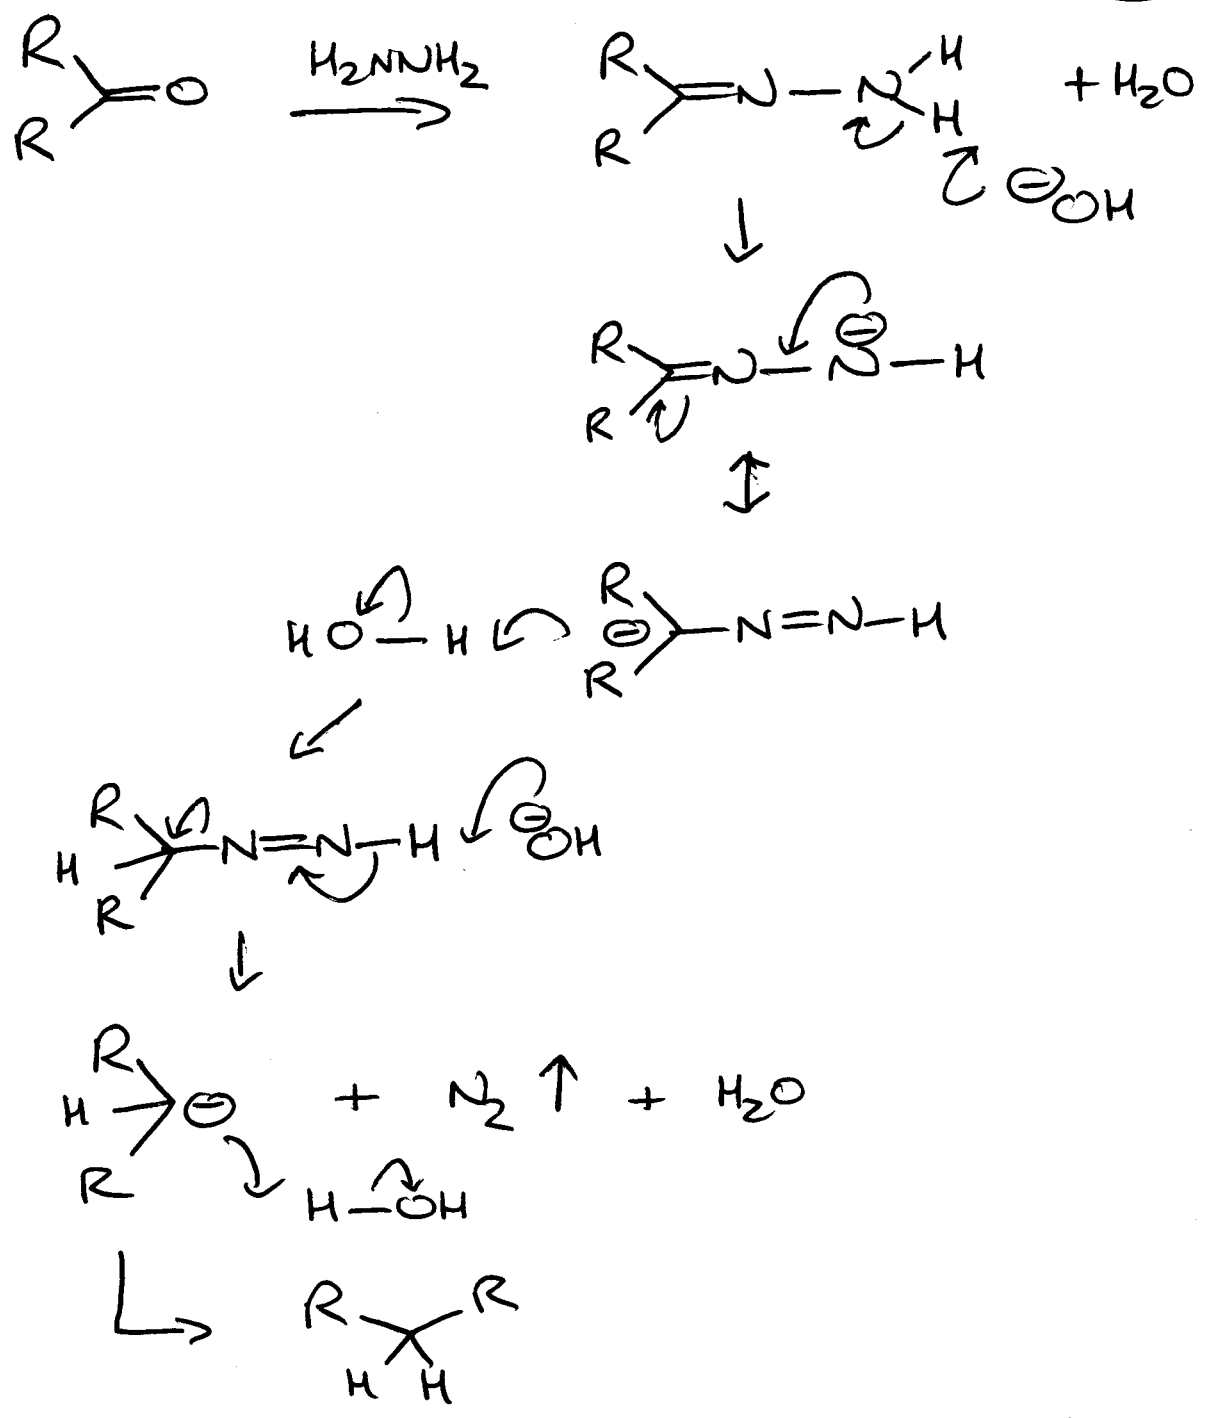 R
O
R
H₂NNH₂
R
N — N
H
H
R
+ H₂O
⊖OH
R
N — N — H
⊖
R
H O — H
R
⊖
N = N — H
R
R
H
N = N — H
R
⊖OH
R
H
⊖
R
+ N₂ ↑ + H₂O
H — OH
R R
H H